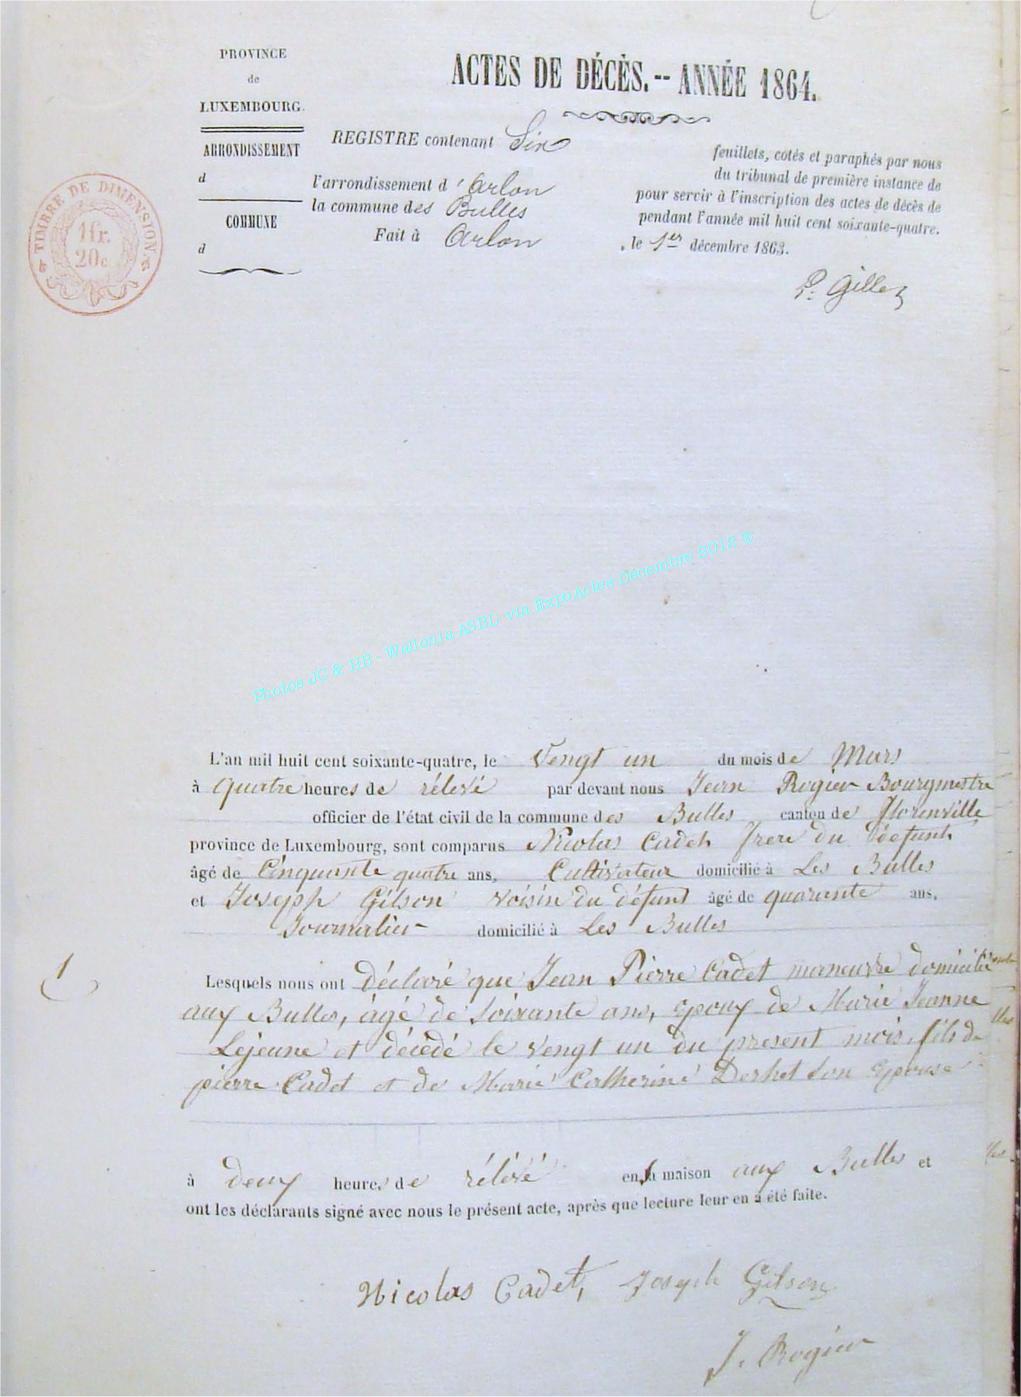 PROVINCE
de
LUXEMBOURG.
ARRONDISSEMENT
d
COMMUNE
d
TIMBRE DE DIMENSION
1 fr.
20 c.
ACTES DE DÉCÈS. -- ANNÉE 1864.
REGISTRE contenant Six feuillets, cotés et paraphés par nous
du tribunal de première instance de
l'arrondissement d'Arlon pour servir à l'inscription des actes de décès de
la commune des Bulles pendant l'année mil huit cent soixante-quatre.
Fait à Arlon, le 1er décembre 1863.
Photos JC & HB - Wallonia ASBL via ExpoActes Décembre 2012 ©
L'an mil huit cent soixante-quatre, le Vengt un du mois de Mars
à Quatre heures de rélévé par devant nous Jean Rogier Bourgmestre
officier de l'état civil de la commune des Bulles canton de Florenville
province de Luxembourg, sont comparus Nicolas Cadet frere du Défunt
âgé de Cinquante quatre ans, Cultivateur domicilié à Les Bulles
et Joseph Gilson voisin du défunt âgé de quarante ans,
Journalier domicilié à Les Bulles
1
Lesquels nous ont déclaré que Jean Pierre Cadet maneuvre domicilié
aux Bulles, âgé de Soixante ans, epoux de Marie Jeanne
Lejeune et décédé le vengt un du present mois, fils de
pierre Cadet et de Marie Catherine son Epouse
à deux heures de rélévé en sa maison aux Bulles et
ont les déclarants signé avec nous le présent acte, après que lecture leur en a été faite.
Nicolas Cadet, Joseph Gilson
J. Rogier